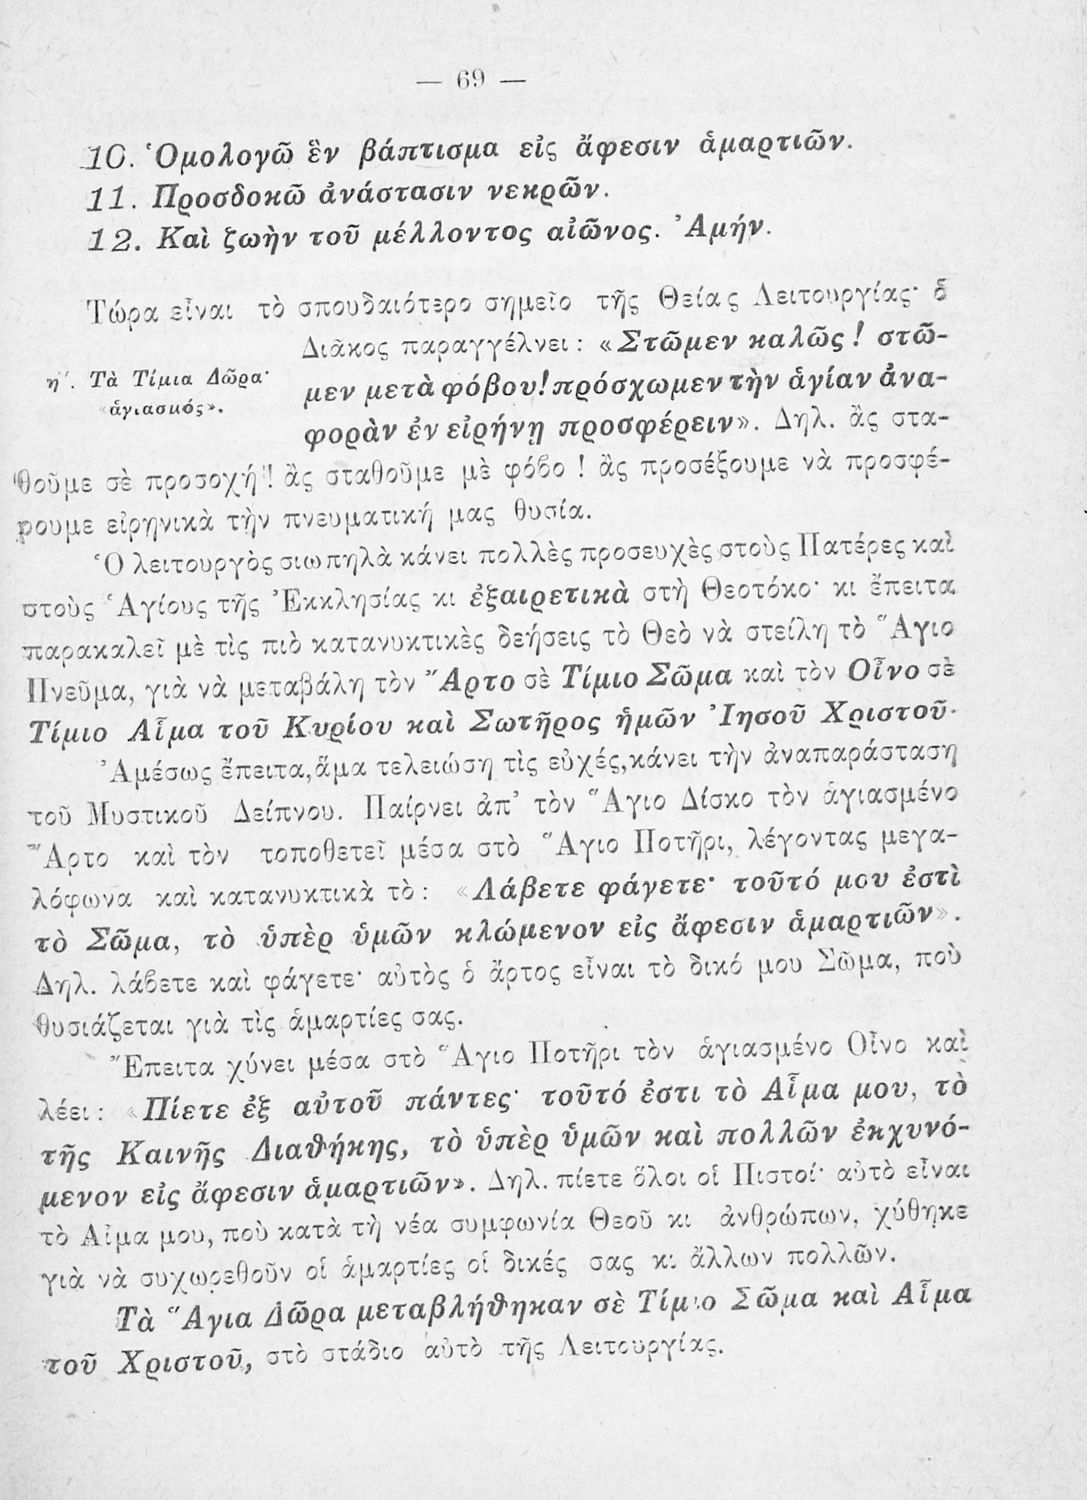 — 69 —
10. Ὁμολογῶ ἓν βάπτισμα εἰς ἄφεσιν ἁμαρτιῶν.
11. Προσδοκῶ ἀνάστασιν νεκρῶν.
12. Καὶ ζωὴν τοῦ μέλλοντος αἰῶνος. Ἀμήν.
Τώρα εἶναι τὸ σπουδαιότερο σημεῖο τῆς Θείας Λειτουργίας· ὁ
Διᾶκος παραγγέλνει : «Στῶμεν καλῶς! στῶ-
η΄. Τὰ Τίμια Δῶρα·
«ἁγιασμός».
μεν μετὰ φόβου! πρόσχωμεν τὴν ἁγίαν ἀνα-
φορὰν ἐν εἰρήνῃ προσφέρειν». Δηλ. ἂς στα-
θοῦμε σὲ προσοχή! ἂς σταθοῦμε μὲ φόβο ! ἂς προσέξουμε νὰ προσφέ-
ρουμε εἰρηνικὰ τὴν πνευματική μας θυσία.
Ὁ λειτουργὸς σιωπηλὰ κάνει πολλὲς προσευχὲς στοὺς Πατέρες καὶ
στοὺς Ἁγίους τῆς Ἐκκλησίας κι ἐξαιρετικὰ στὴ Θεοτόκο· κι ἔπειτα
παρακαλεῖ μὲ τὶς πιὸ κατανυκτικὲς δεήσεις τὸ Θεὸ νὰ στείλη τὸ Ἅγιο
Πνεῦμα, γιὰ νὰ μεταβάλη τὸν Ἄρτο σὲ Τίμιο Σῶμα καὶ τὸν Οἶνο σὲ
Τίμιο Αἷμα τοῦ Κυρίου καὶ Σωτῆρος ἡμῶν Ἰησοῦ Χριστοῦ·
Ἀμέσως ἔπειτα, ἅμα τελειώση τὶς εὐχές, κάνει τὴν ἀναπαράσταση
τοῦ Μυστικοῦ Δείπνου. Παίρνει ἀπ’ τὸν Ἅγιο Δίσκο τὸν ἁγιασμένο
Ἄρτο καὶ τὸν τοποθετεῖ μέσα στὸ Ἅγιο Ποτῆρι, λέγοντας μεγα-
λόφωνα καὶ κατανυκτικὰ τὸ : «Λάβετε φάγετε· τοῦτό μου ἐστὶ
τὸ Σῶμα, τὸ ὑπὲρ ὑμῶν κλώμενον εἰς ἄφεσιν ἁμαρτιῶν».
Δηλ. λάβετε καὶ φάγετε· αὐτὸς ὁ ἄρτος εἶναι τὸ δικό μου Σῶμα, ποὺ
θυσιάζεται γιὰ τὶς ἁμαρτίες σας.
Ἔπειτα χύνει μέσα στὸ Ἅγιο Ποτῆρι τὸν ἁγιασμένο Οἶνο καὶ
λέει : «Πίετε ἐξ αὐτοῦ πάντες· τοῦτό ἐστι τὸ Αἷμα μου, τὸ
τῆς Καινῆς Διαθήκης, τὸ ὑπὲρ ὑμῶν καὶ πολλῶν ἐκχυνό-
μενον εἰς ἄφεσιν ἁμαρτιῶν». Δηλ. πίετε ὅλοι οἱ Πιστοί· αὐτὸ εἶναι
τὸ Αἷμα μου, ποὺ κατὰ τὴ νέα συμφωνία Θεοῦ κι ἀνθρώπων, χύθηκε
γιὰ νὰ συχωρεθοῦν οἱ ἁμαρτίες οἱ δικές σας κι ἄλλων πολλῶν.
Τὰ Ἅγια Δῶρα μεταβλήθηκαν σὲ Τίμιο Σῶμα καὶ Αἷμα
τοῦ Χριστοῦ, στὸ στάδιο αὐτὸ τῆς Λειτουργίας.